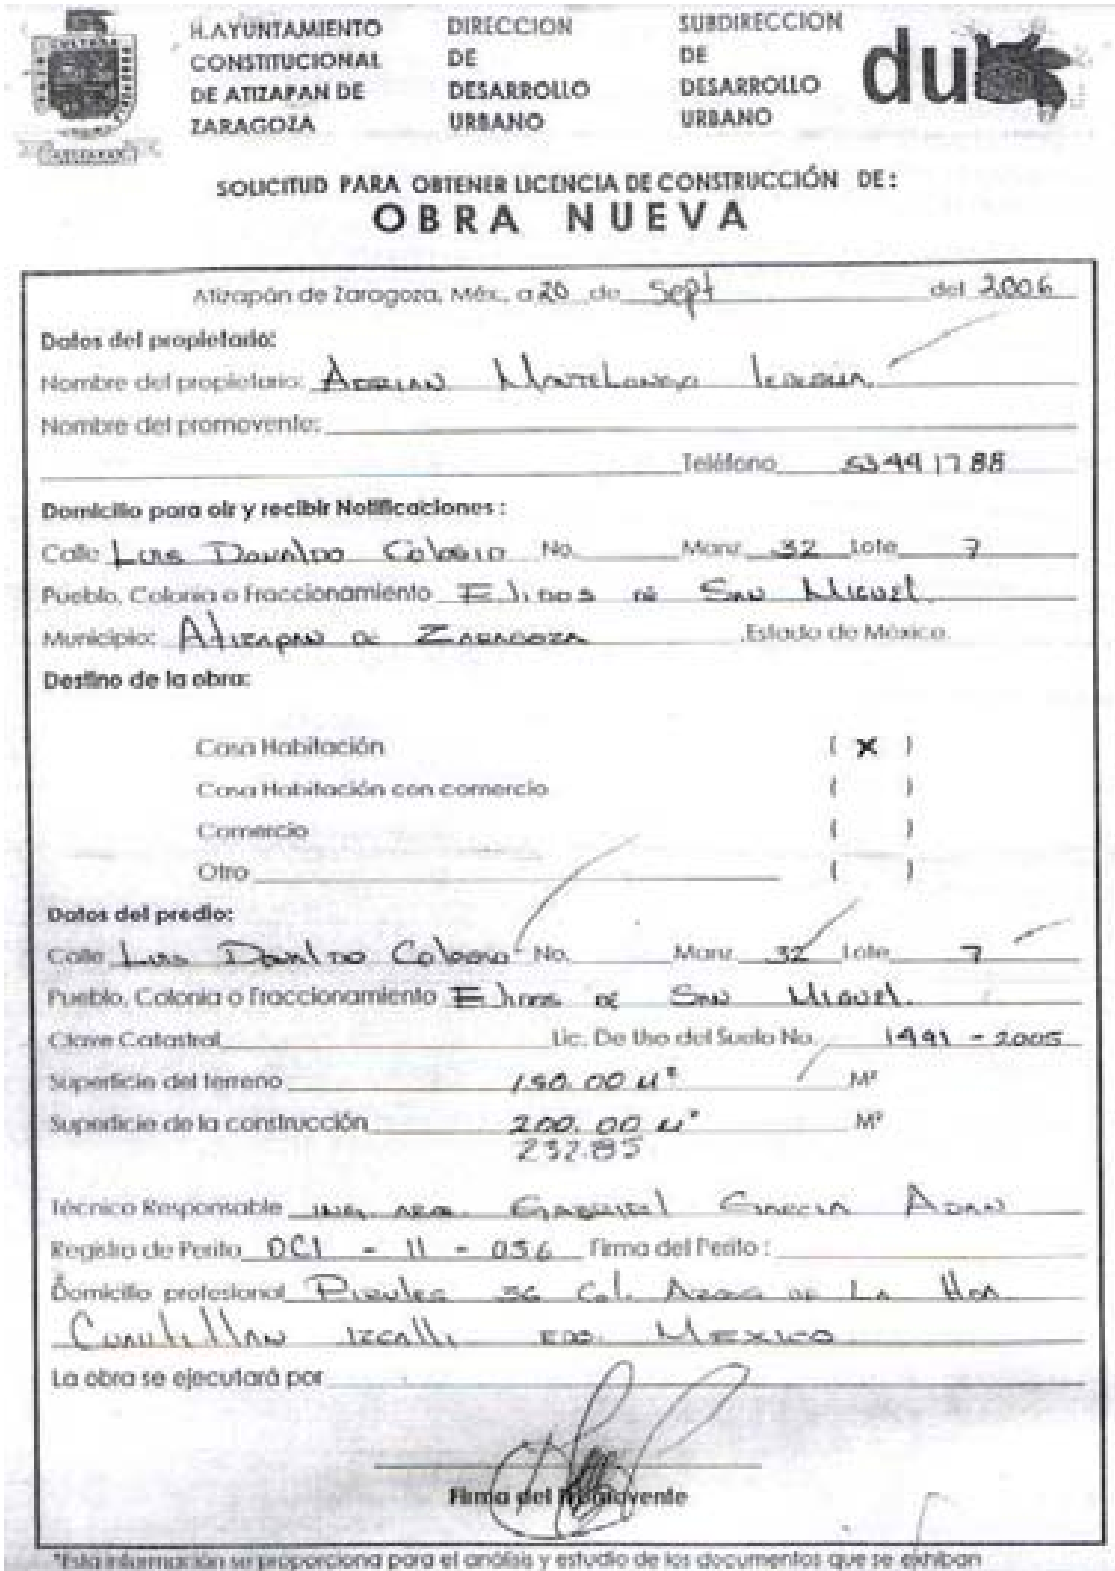 H. AYUNTAMIENTO CONSTITUCIONAL DE ATIZAPAN DE ZARAGOZA
DIRECCION DE DESARROLLO URBANO
SUBDIRECCION DE DESARROLLO URBANO
du
SOLICITUD PARA OBTENER LICENCIA DE CONSTRUCCIÓN DE:
OBRA NUEVA
Atizapán de Zaragoza, Méx., a 20 de Sept del 2006
Datos del propietario:
Nombre del propietario: ADRIAN
Nombre del promovente:
Teléfono 53441788
Domicilio para oir y recibir Notificaciones:
Calle Luis Donaldo Colosio No. Manz. 32 Lote 7
Pueblo, Colonia o Fraccionamiento Ejidos DE San Miguel
Municipio: Atizapan DE Zaragoza .Estado de México.
Destino de la obra:
Casa Habitación ( X )
Casa Habitación con comercio ( )
Comercio ( )
Otro ( )
Datos del predio:
Calle Luis Donaldo Colosio No. Manz. 32 Lote 7
Pueblo, Colonia o Fraccionamiento Ejidos DE San Miguel.
Clave Catastral Lic. De Uso del Suelo No. 1491 - 2005
Superficie del terreno 150.00 M² M²
Superficie de la construcción 200.00 M² M²
232.85
Técnico Responsable ING. ARQ. Gabriel Garcia Adan
Registro de Perito DCI - 11 - 036 Firma del Perito:
Domicilio profesional 36 Col. DE La Hda.
Cuautitlan Izcalli EDO. Mexico
La obra se ejecutará por
Firma del Promovente
*Esta información se proporciona para el análisis y estudio de los documentos que se exhiban